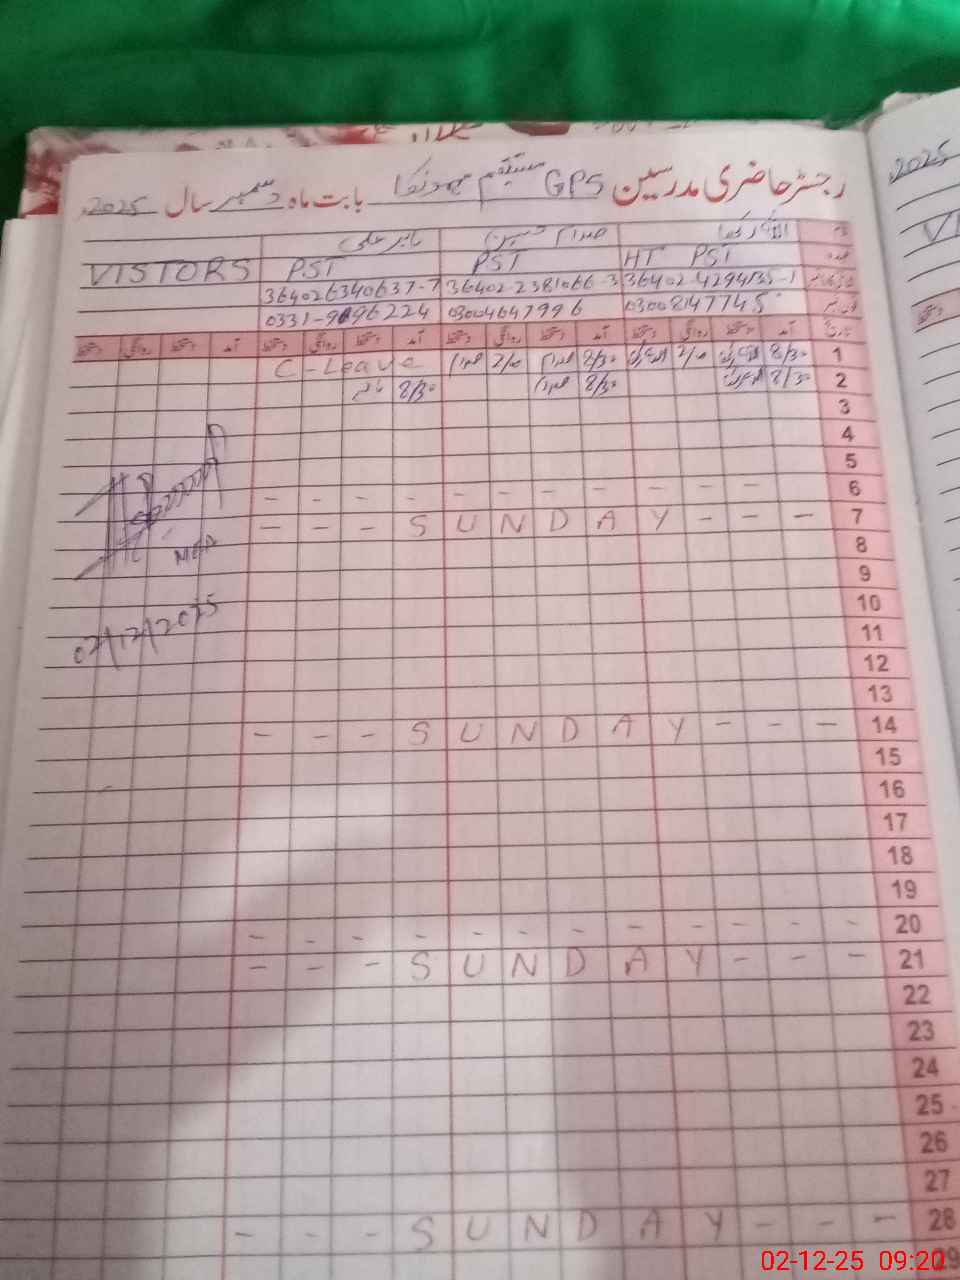 رجسٹر حاضری مدرسین GPS مستقیم بابت ماہ دسمبر سال 2025ء
نام اللہ رکھا صدام حسین بابر علی
عہدہ HT PST PST PST VISTORS
36402-4294135-1 36402-2381066-3 364026340637-7
03008147745 03004647996 0331-9696224
تاریخ آمد دستخط روانگی دستخط آمد دستخط روانگی دستخط آمد دستخط روانگی دستخط آمد دستخط روانگی دستخط
1 8/30 اللہ رکھا 2/00 اللہ رکھا 8/30 صدام 2/00 صدام C-Leave
2 8/30 اللہ رکھا 8/30 صدام 8/30 بابر
3
4
5
6 - - - - - - - - - - -
7 - - - S U N D A Y - - -
8
MEA
9
10
02/12/2025
11
12
13
14 - - - S U N D A Y - - -
15
16
17
18
19
20 - - - - - - - - - - - -
21 - - - S U N D A Y - - -
22
23
24
25
26
27
28 - - - S U N D A Y - - -
29
02-12-25 09:20
2025ء